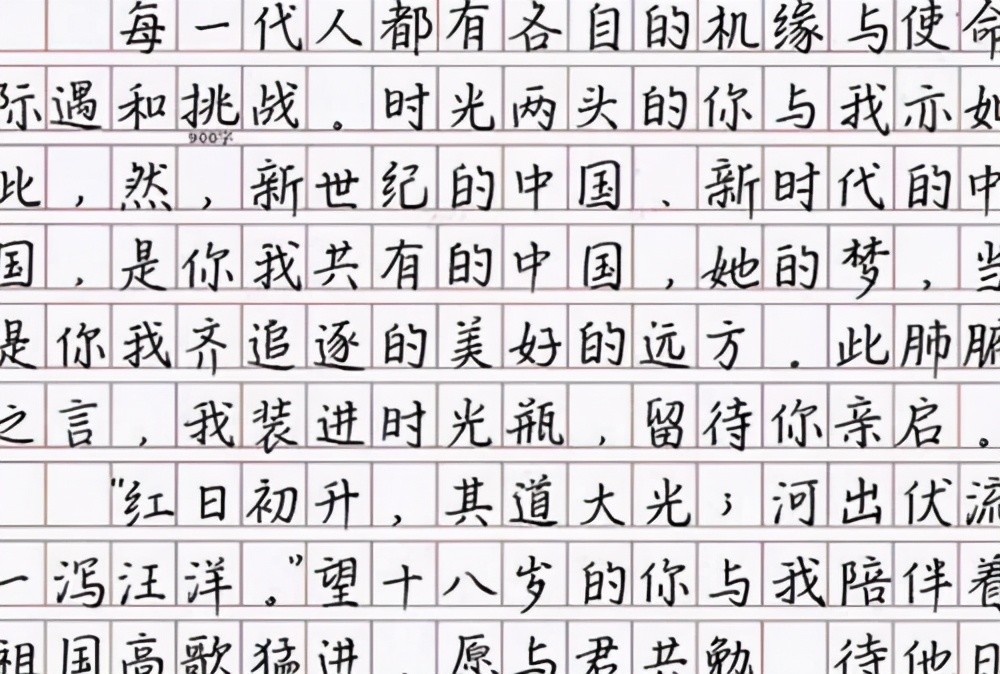 每一代人都有各自的机缘与使命
际遇和挑战。时光两头的你与我亦如
900字
此，然，新世纪的中国、新时代的中
国，是你我共有的中国，她的梦，当
是你我齐追逐的美好的远方．此肺腑
之言，我装进时光瓶，留待你亲启。
"红日初升，其道大光；河出伏流
一泻汪洋。"望十八岁的你与我陪伴着
祖国高歌猛进．愿与君共勉 待他日